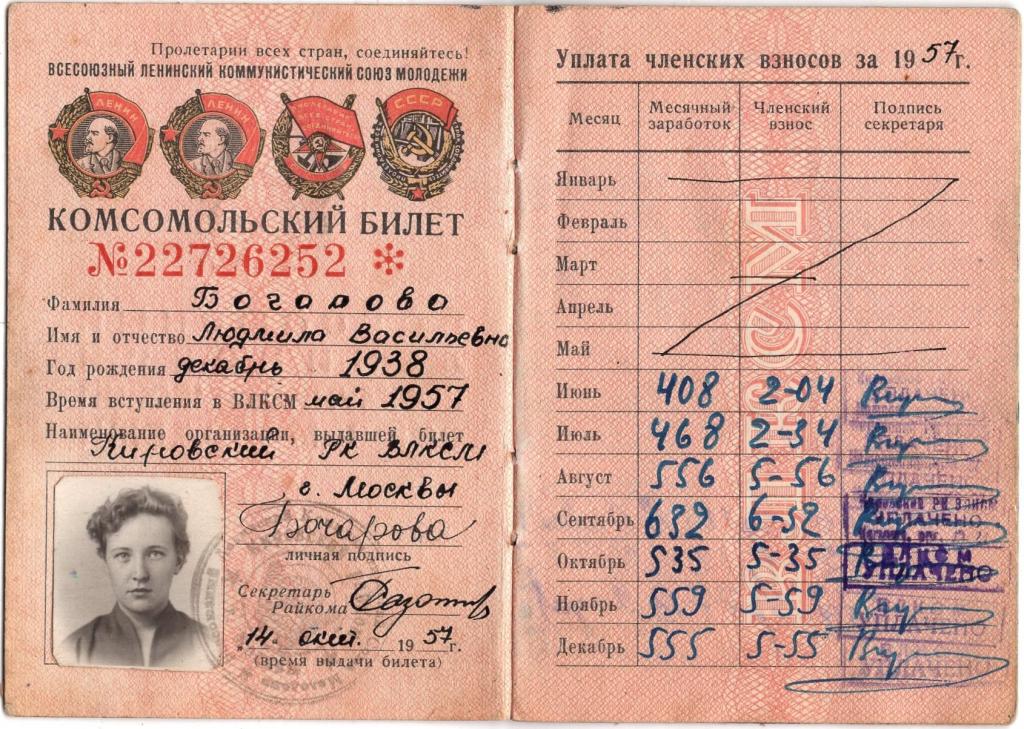 Пролетарии всех стран, соединяйтесь!
ВСЕСОЮЗНЫЙ ЛЕНИНСКИЙ КОММУНИСТИЧЕСКИЙ СОЮЗ МОЛОДЕЖИ
ЛЕНИН ЛЕНИН СССР
КОМСОМОЛЬСКИЙ БИЛЕТ
№22726252 *
Фамилия Бочарова
Имя и отчество Людмила Васильевна
Год рождения декабрь 1938
Время вступления в ВЛКСМ май 1957
Наименование организации, выдавшей билет
Кировский РК ВЛКСМ
г. Москвы
Бочарова
личная подпись
Секретарь
Райкома
"14" окт. 1957г.
(время выдачи билета)
Уплата членских взносов за 1957г.
Месяц Месячный заработок Членский взнос Подпись секретаря
Январь
Февраль
Март
Апрель
Май
Июнь 408 2-04
Июль 468 2-34
Август 556 5-56
Сентябрь 652 6-52
Октябрь 535 5-35
Ноябрь 559 5-59
Декабрь 555 5-55
ВЛКСМ
УПЛАЧЕНО